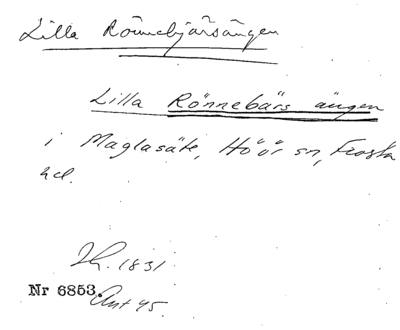 Lilla Rönnebjärsängen
Lilla Rönnebärs ängen
i Maglasäte, Höör sn, Frosta
hd.
Lh. 1831
Nr 6853.
Ant 45.